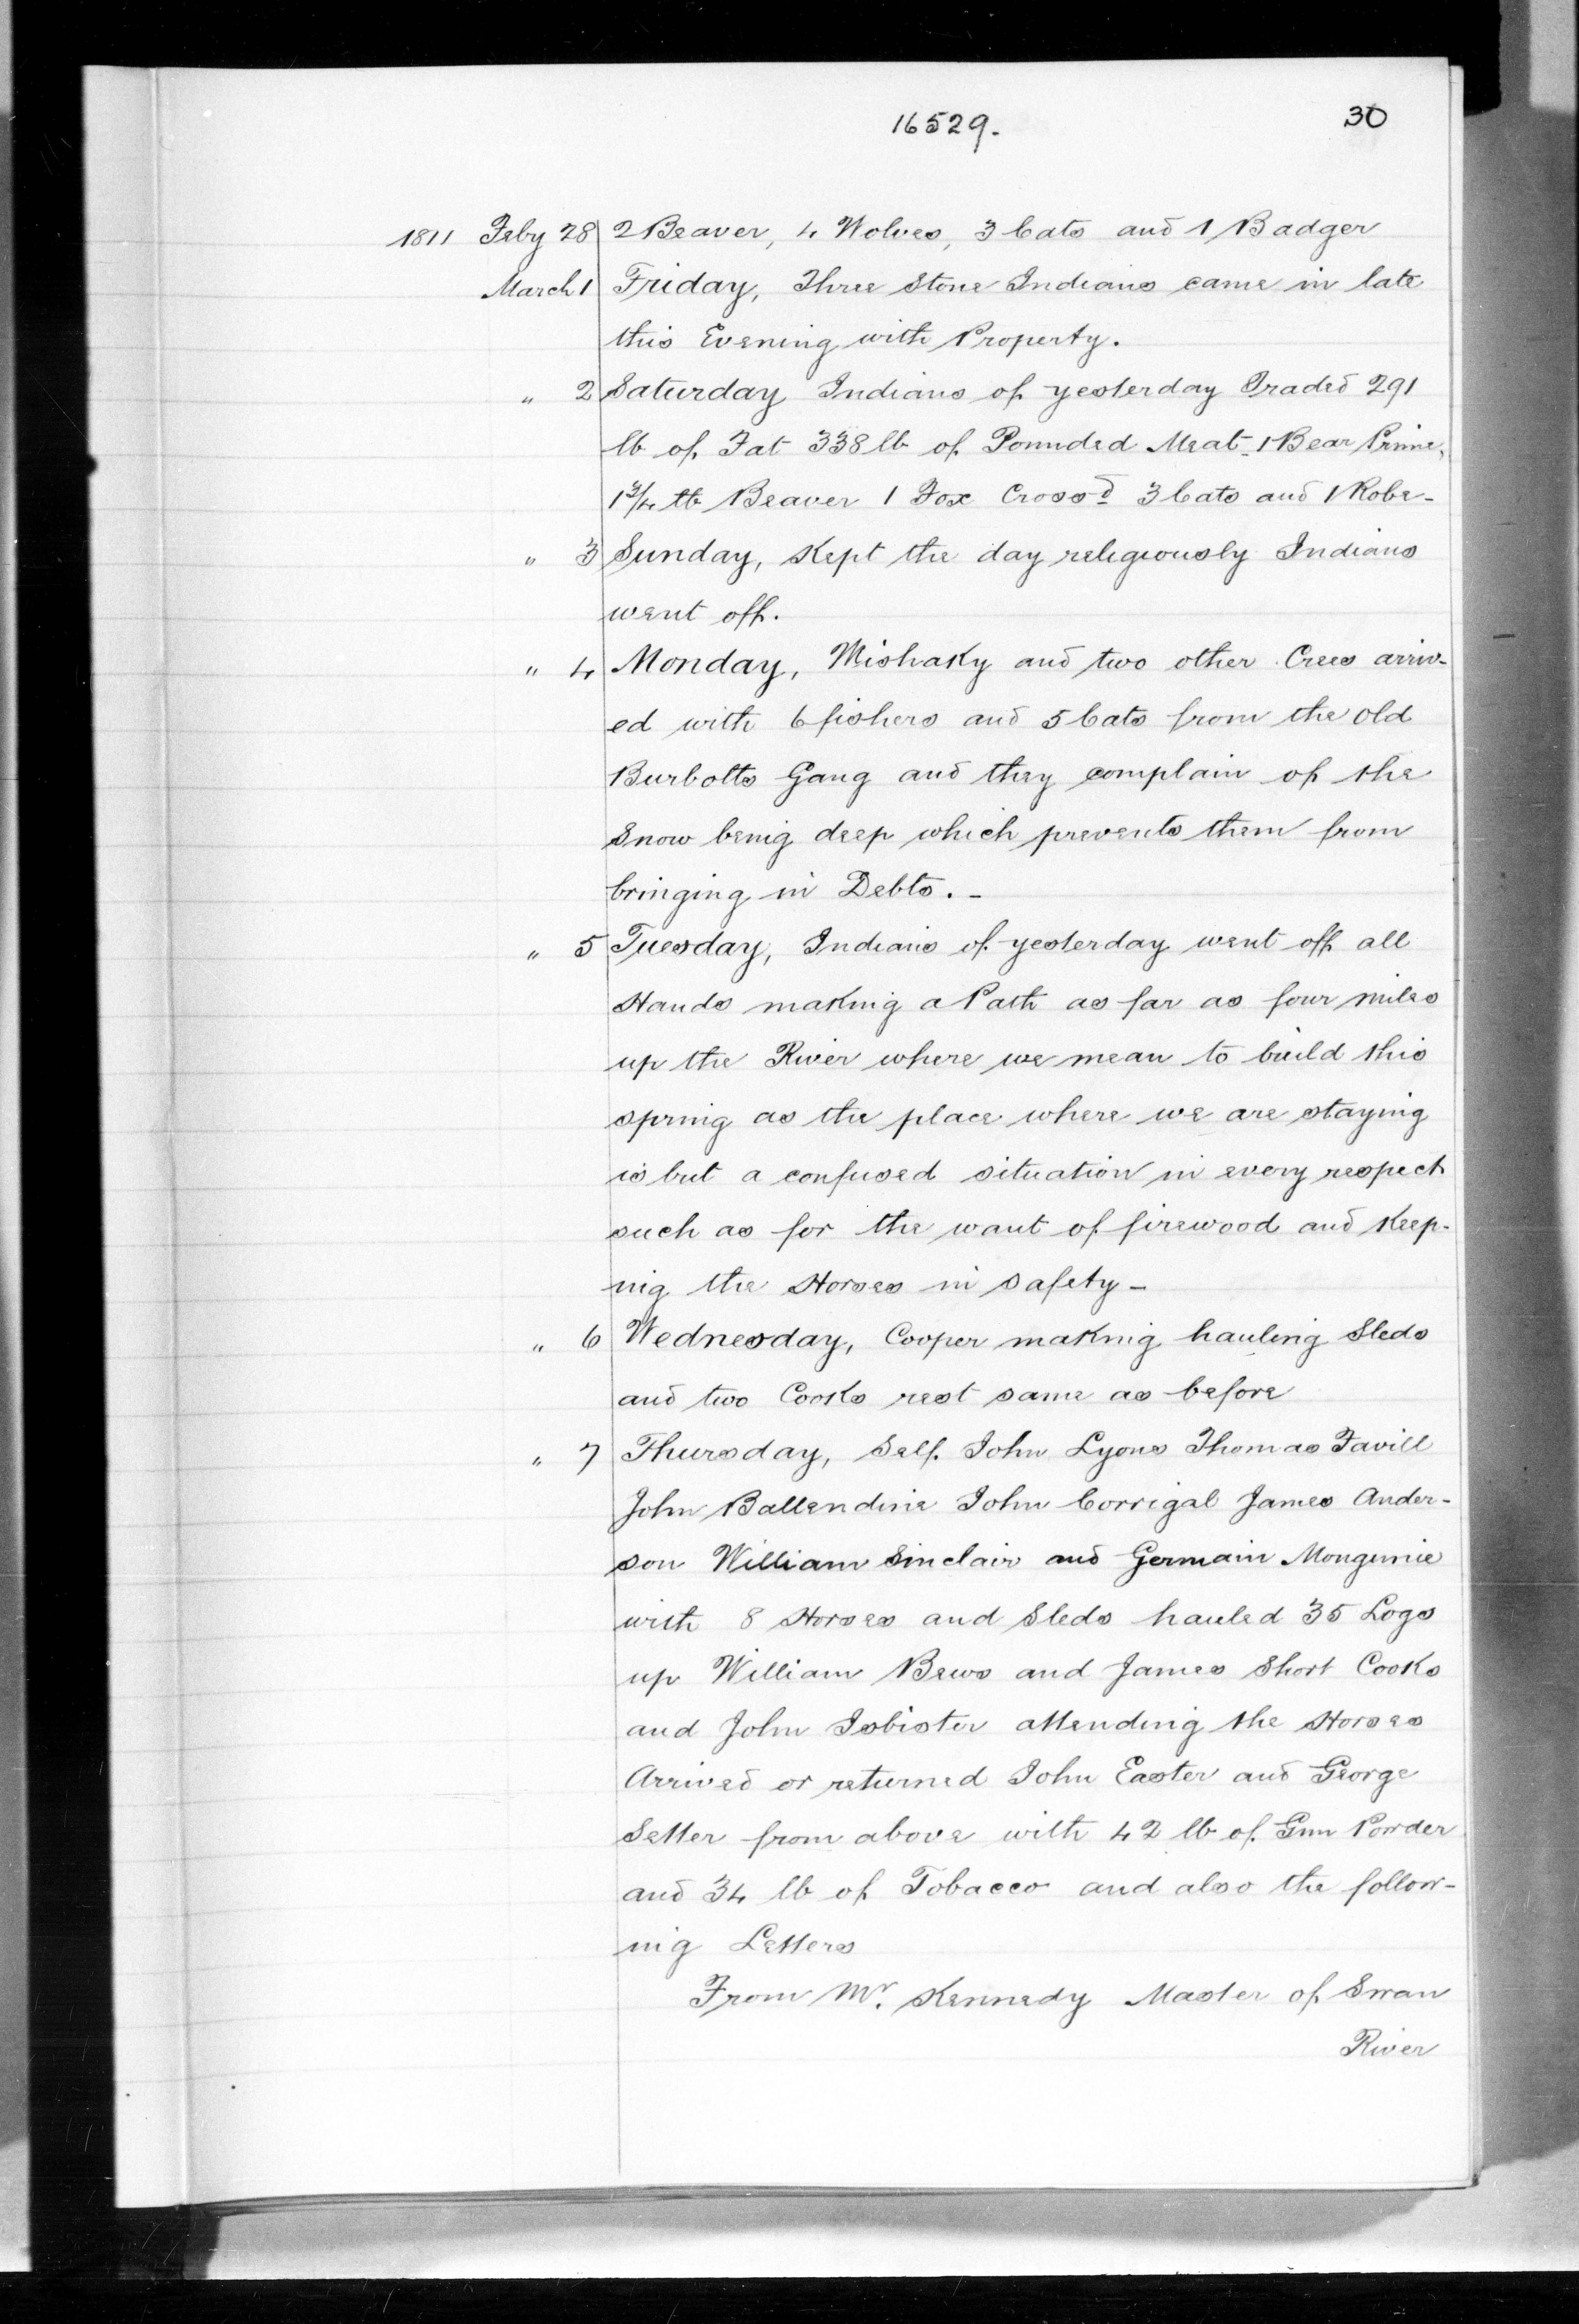 16529.
30
1811 Feby 28 2 Beaver, 4 Wolves, 3 Cats and 1 Badger
March 1 Friday, Three Stone Indians came in late
this Evening with Property.
" 2 Saturday Indians of yesterday Traded 291
lb of Fat 338 lb of Pounded Meat - 1 Bear Prime,
1 3/4 lb Beaver 1 Fox Crossd 3 Cats and 1 Robe -
" 3 Sunday, Kept the day religiously Indians
went off.
" 4 Monday, Mishaky and two other Crees arriv-
ed with 6 fishers and 5 Cats from the old
Burbotts Gang and they complain of the
Snow being deep which prevents them from
bringing in Debts. -
" 5 Tuesday, Indians of yesterday went off all
Hands making a Path as far as four miles
up the River where we mean to build this
spring as the place where we are staying
is but a confused situation in every respect
such as for the want of firewood and Keep-
ing the Horses in safety -
" 6 Wednesday, Cooper making hauling Sleds
and two Cooks rest same as before
" 7 Thursday, Self John Lyons Thomas Favill
John Ballendine John Corrigal James Ander-
son William Sinclair and Germain Mongenie
with 8 Horses and Sleds hauled 35 Logs
up William Bews and James Short Cooks
and John Isbister attending the Horses
Arrived or returned John Easter and George
Setter from above with 42 lb of Gun Powder
and 34 lb of Tobacco and also the follow-
ing Letters
From Mr. Kennedy Master of Swan
River